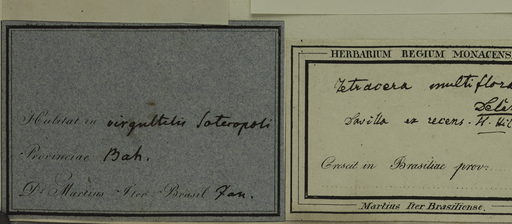 Habitat in virgultilis Soteropoli
Provinciae Bah.
Dr Martius Iter Brasil Jan.
HERBARIUM REGIUM MONACENS
Tetracera multiflora
Savilla ex recens. H.
Crescit in Brasiliae prov:
Martius Iter Brasiliense.